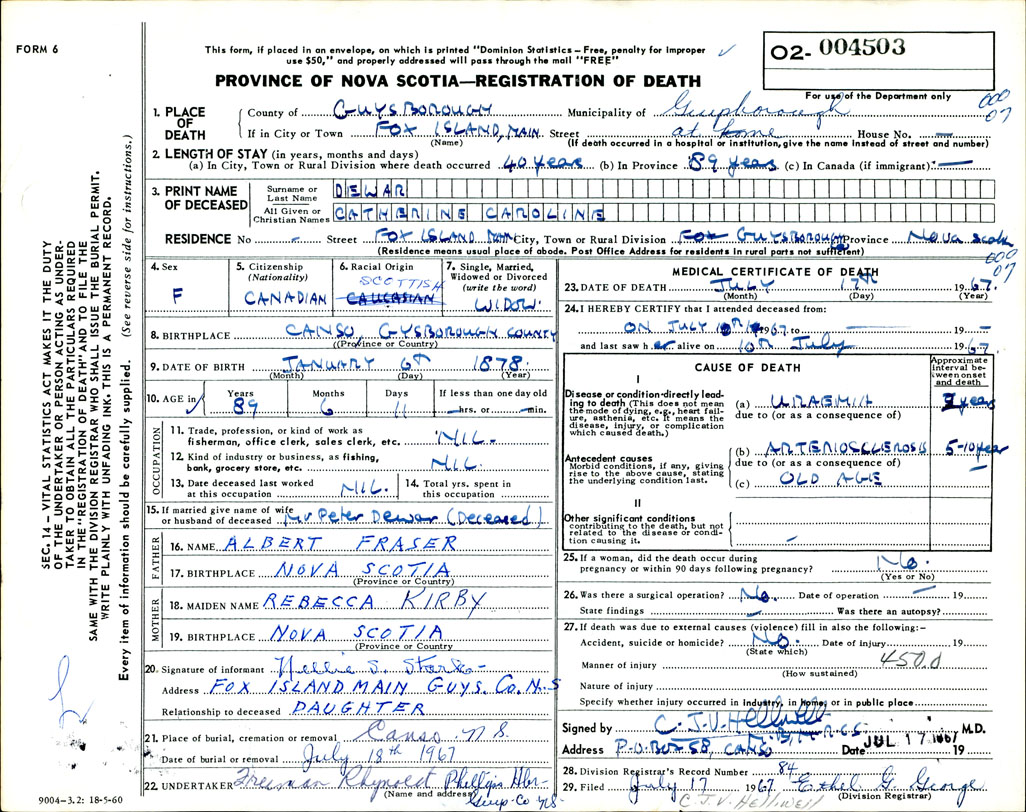 FORM 6
This form, if placed in an envelope, on which is printed "Dominion Statistics – Free, penalty for improper
use $50," and properly addressed will pass through the mail "FREE"
O2- 004503
PROVINCE OF NOVA SCOTIA—REGISTRATION OF DEATH
For use of the Department only
000
07
1. PLACE OF DEATH
County of GUYSBOROUGH Municipality of Guysborough
If in City or Town FOX ISLAND, MAIN. Street at home House No. —
(Name) (If death occurred in a hospital or institution, give the name instead of street and number)
2. LENGTH OF STAY (in years, months and days)
(a) In City, Town or Rural Division where death occurred 40 years (b) In Province 89 years (c) In Canada (if immigrant) —
3. PRINT NAME OF DECEASED
Surname or Last Name DEWAR
All Given or Christian Names CATHERINE CAROLINE
RESIDENCE No - Street FOX ISLAND MAIN City, Town or Rural Division FOX GUYSBOROUGH Province Nova Scotia
(Residence means usual place of abode. Post Office Address for residents in rural parts not sufficient)
000
07
4. Sex
F
5. Citizenship
(Nationality)
CANADIAN
6. Racial Origin
SCOTTISH
CAUCASIAN
7. Single, Married, Widowed or Divorced
(write the word)
WIDOW.
8. BIRTHPLACE CANSO, GYSBOROUGH COUNTY
(Province or Country)
9. DATE OF BIRTH JANUARY 6th 1878.
(Month) (Day) (Year)
10. AGE in
Years 89
Months 6
Days 11
If less than one day old
hrs. or min.
OCCUPATION
11. Trade, profession, or kind of work as
fisherman, office clerk, sales clerk, etc. NIL.
12. Kind of industry or business, as fishing,
bank, grocery store, etc. NIL.
13. Date deceased last worked
at this occupation NIL.
14. Total yrs. spent in
this occupation
15. If married give name of wife
or husband of deceased Mr Peter Dewar (Deceased)
FATHER
16. NAME ALBERT FRASER
17. BIRTHPLACE NOVA SCOTIA
(Province or Country)
MOTHER
18. MAIDEN NAME REBECCA KIRBY
19. BIRTHPLACE NOVA SCOTIA
(Province or Country)
20. Signature of informant Nellie S.
Address FOX ISLAND MAIN GUYS. Co. N.S
Relationship to deceased DAUGHTER
21. Place of burial, cremation or removal Canso N.S.
Date of burial or removal July 18th 1967
22. UNDERTAKER Phillips Hbr-
(Name and address) Guys. Co NS.
9004-3.2: 18-5-60
MEDICAL CERTIFICATE OF DEATH
23. DATE OF DEATH JULY 17th 1967.
(Month) (Day) (Year)
24. I HEREBY CERTIFY that I attended deceased from:
ON JULY 10th 1967. to — 19 —
and last saw her alive on 10th July 1967
CAUSE OF DEATH
Approximate interval between onset and death
I
Disease or condition directly leading to death (This does not mean the mode of dying, e.g., heart failure, asthenia, etc. It means the disease, injury, or complication which caused death.)
(a) URAEMIA years
due to (or as a consequence of)
Antecedent causes
Morbid conditions, if any, giving rise to the above cause, stating the underlying condition last.
(b) ARTERIOSCLEROSIS 5-10 year
due to (or as a consequence of)
(c) OLD AGE —
II
Other significant conditions
contributing to the death, but not related to the disease or condition causing it.
-
25. If a woman, did the death occur during
pregnancy or within 90 days following pregnancy? No.
(Yes or No)
26. Was there a surgical operation? No. Date of operation — 19
State findings — Was there an autopsy?
27. If death was due to external causes (violence) fill in also the following:–
Accident, suicide or homicide? No. Date of injury 19
(State which)
Manner of injury 450.0
(How sustained)
Nature of injury
Specify whether injury occurred in Industry, in Home, or in public place
Signed by C. J. V. Helliwell M.R.C.S. M.D.
Address P.O. BOX 58, CANSO Date JUL 17 1967 19
28. Division Registrar's Record Number 84
29. Filed July 17 1967. Ethel G. George
(Division Registrar)
C. J. V. Helliwell
SEC. 14 – VITAL STATISTICS ACT MAKES IT THE DUTY
OF THE UNDERTAKER OR PERSON ACTING AS UNDER-
TAKER TO OBTAIN ALL THE PARTICULARS REQUIRED
IN THE "REGISTRATION OF DEATH" AND TO FILE THE
SAME WITH THE DIVISION REGISTRAR WHO SHALL ISSUE THE BURIAL PERMIT.
WRITE PLAINLY WITH UNFADING INK. THIS IS A PERMANENT RECORD.
Every item of information should be carefully supplied. (See reverse side for instructions.)